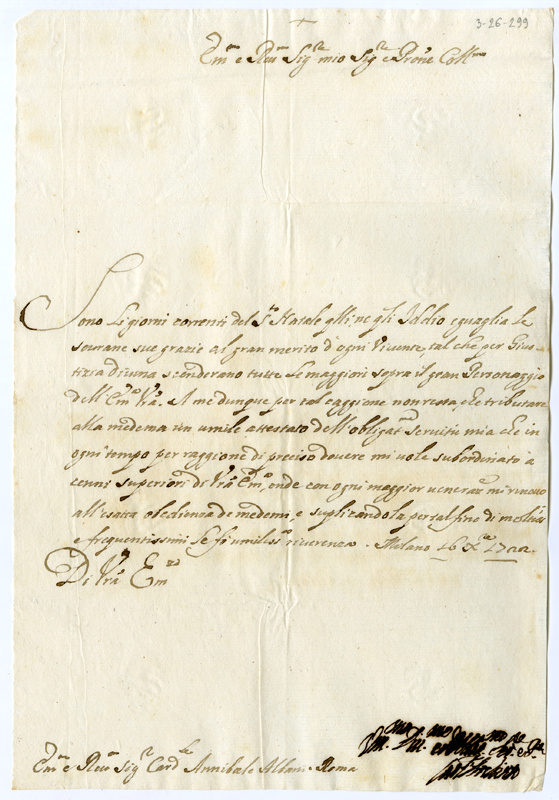 3-26-299
Em.^mo e Reu.^mo Sig.^re mio Sig.^re e Prõne Coll.^mo
Sono li giorni correnti del S.^to Natale q̃lli ne q̃li Iddio eguaglia le
sourane sue grazie al gran merito d'ogni Viuente, tal che per Gius-
tizia Diuina scenderano tutte le maggiori sopra il gran Personaggio
dell'Em.^za Vrã. A me dunque per tal caggione non resta, che tributare
alla medema un umile attestato dell'obligat.^ma seruitù mia che in
ogni tempo per raggione di preciso douere mi uole subordinato a
cenni superiori di Vrã Em.^za, onde con ogni maggior ueneraz.^ne mi rinouo
all'esatta obedienza de medemi, e suplicandola per tal fine di molti
e frequentissimi le fò umiliss.^ma riuerenza. Milano 16 X.^bre 1722.
Di Vrã Em.^za
Em.^mo e Reu.^mo Sig.^r Card.^le Annibale Albani Roma